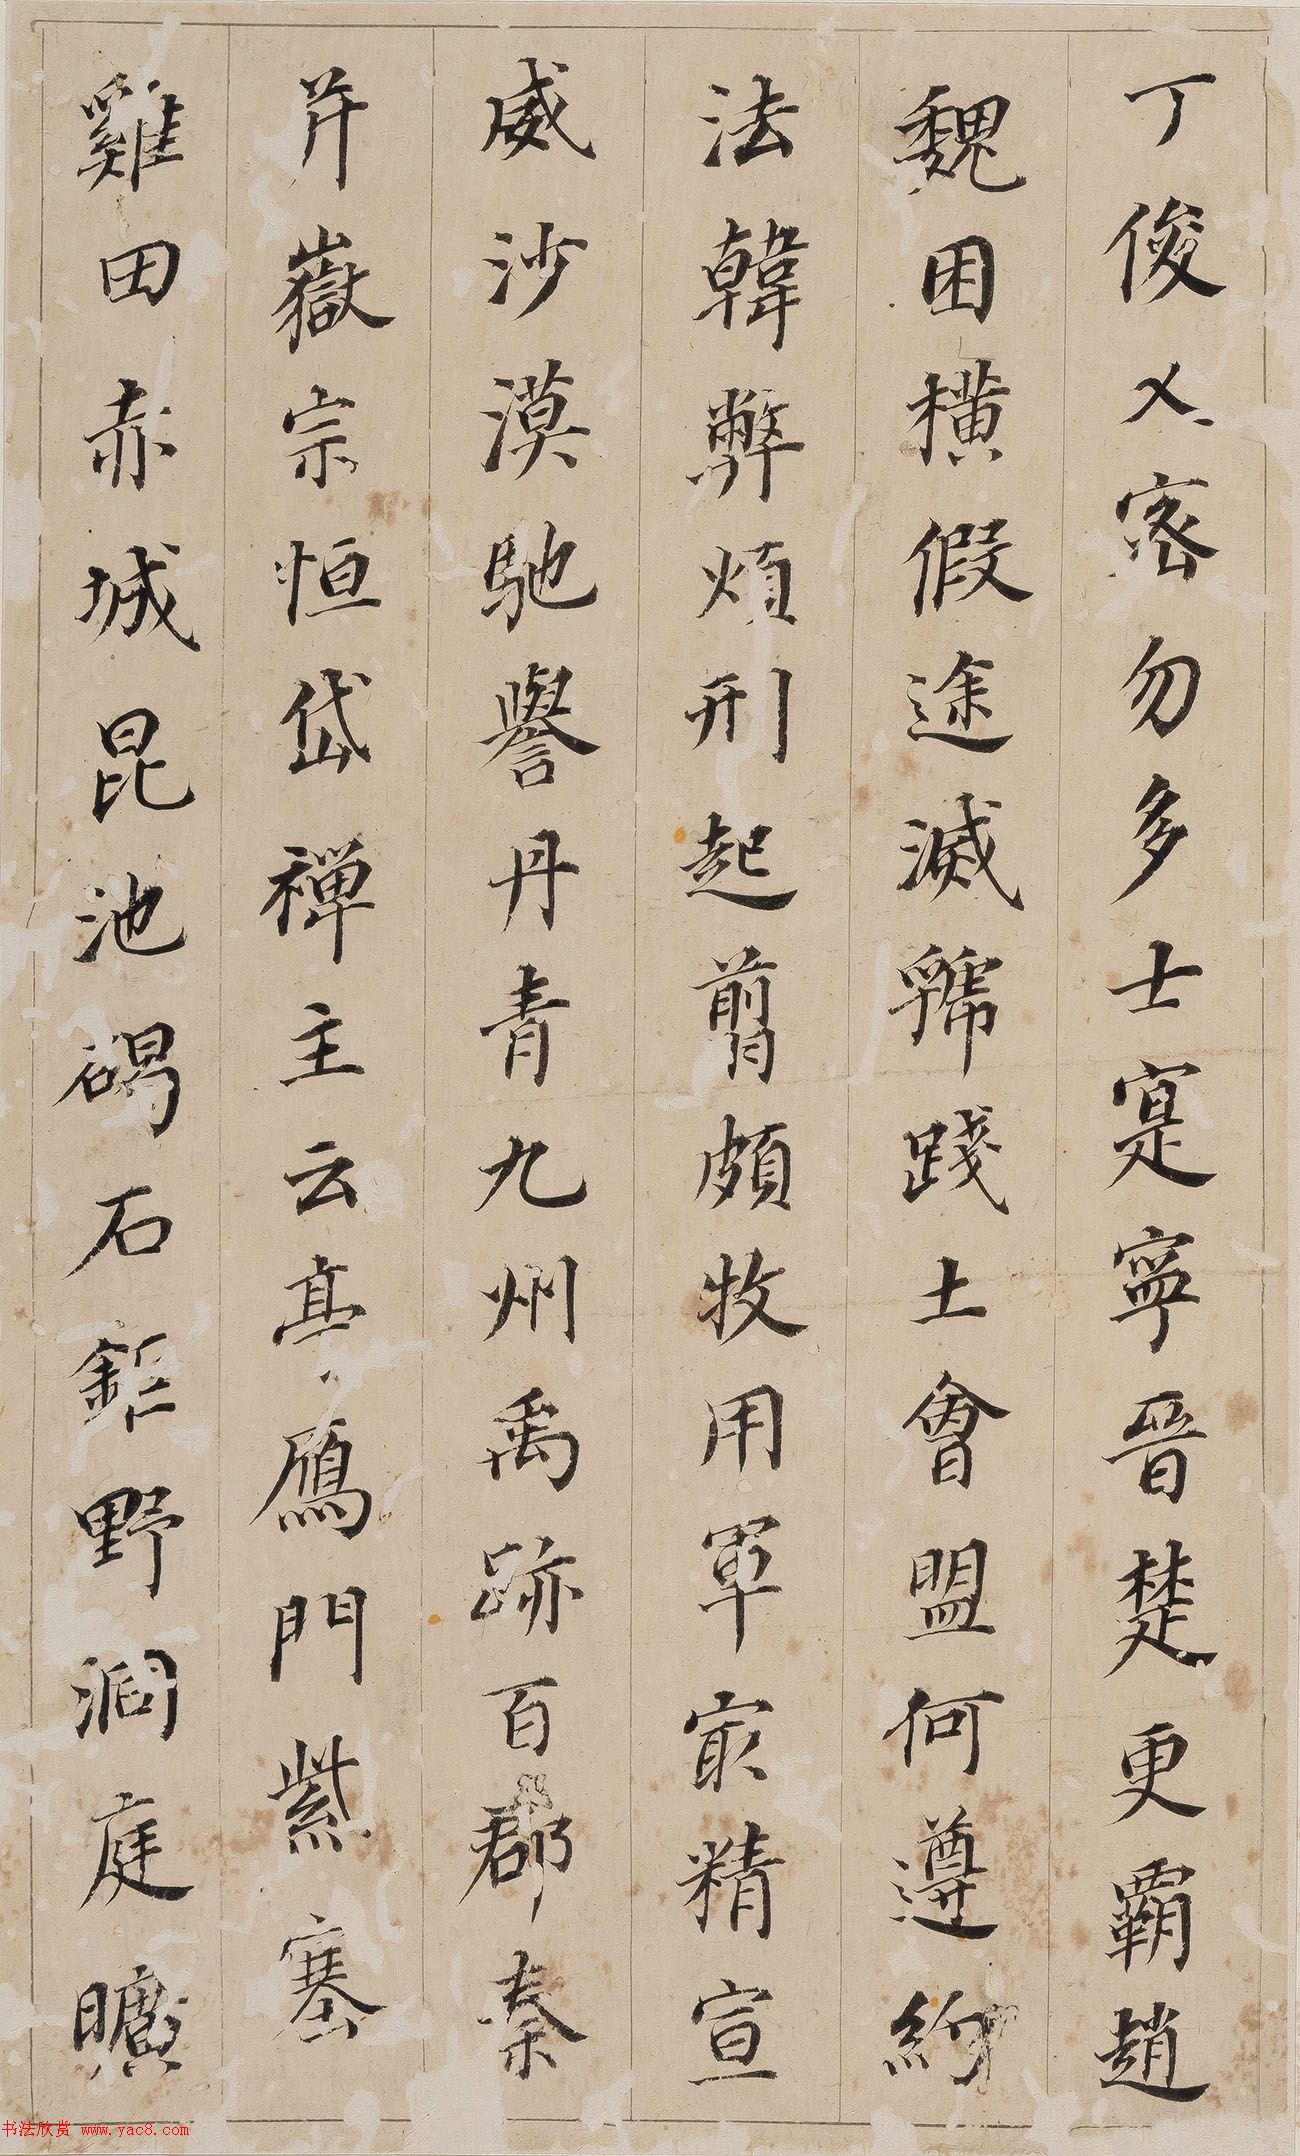 丁俊乂密勿多士寔寧晉楚更霸趙
魏困橫假途滅虢踐土會盟何遵約
法韓弊煩刑起翦頗牧用軍㝡精宣
威沙漠馳譽丹青九州禹跡百郡秦
并嶽宗恒岱禪主云亭鴈門紫塞
雞田赤城昆池碣石鉅野洞庭曠
书法欣赏 www.yac8.com